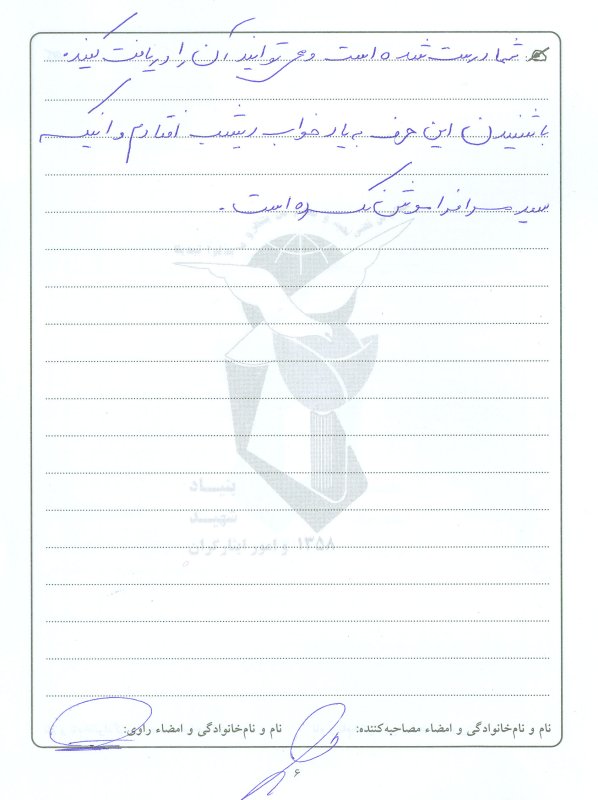 شما درست شده است و می توانید آن را دریافت کنید.
با شنیدن این حرف به یاد خواب دیشب افتادم و اینکه
سید مرا فراموش نکرده است.
بنیاد
شهید
و امور ایثارگران ۱۳۵۸
نام و نام‌خانوادگی و امضاء مصاحبه‌کننده: نام و نام‌خانوادگی و امضاء راوی:
۶